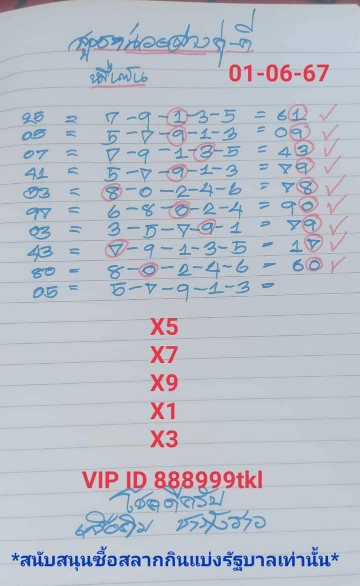 สูตรหน่วยล่าง คู่-คี่
01-06-67
25 = 7-9-1-3-5 = 61 ✓
05 = 5-7-9-1-3 = 09 ✓
07 = 7-9-1-3-5 = 43 ✓
41 = 5-7-9-1-3 = 79 ✓
93 = 8-0-2-4-6 = 78 ✓
97 = 6-8-0-2-4 = 90 ✓
03 = 3-5-7-9-1 = 79 ✓
43 = 7-9-1-3-5 = 17 ✓
80 = 8-0-2-4-6 = 60 ✓
05 = 5-7-9-1-3 =
X5
X7
X9
X1
X3
VIP ID 888999tkl
โชคดีครับ
*สนับสนุนซื้อสลากกินแบ่งรัฐบาลเท่านั้น*